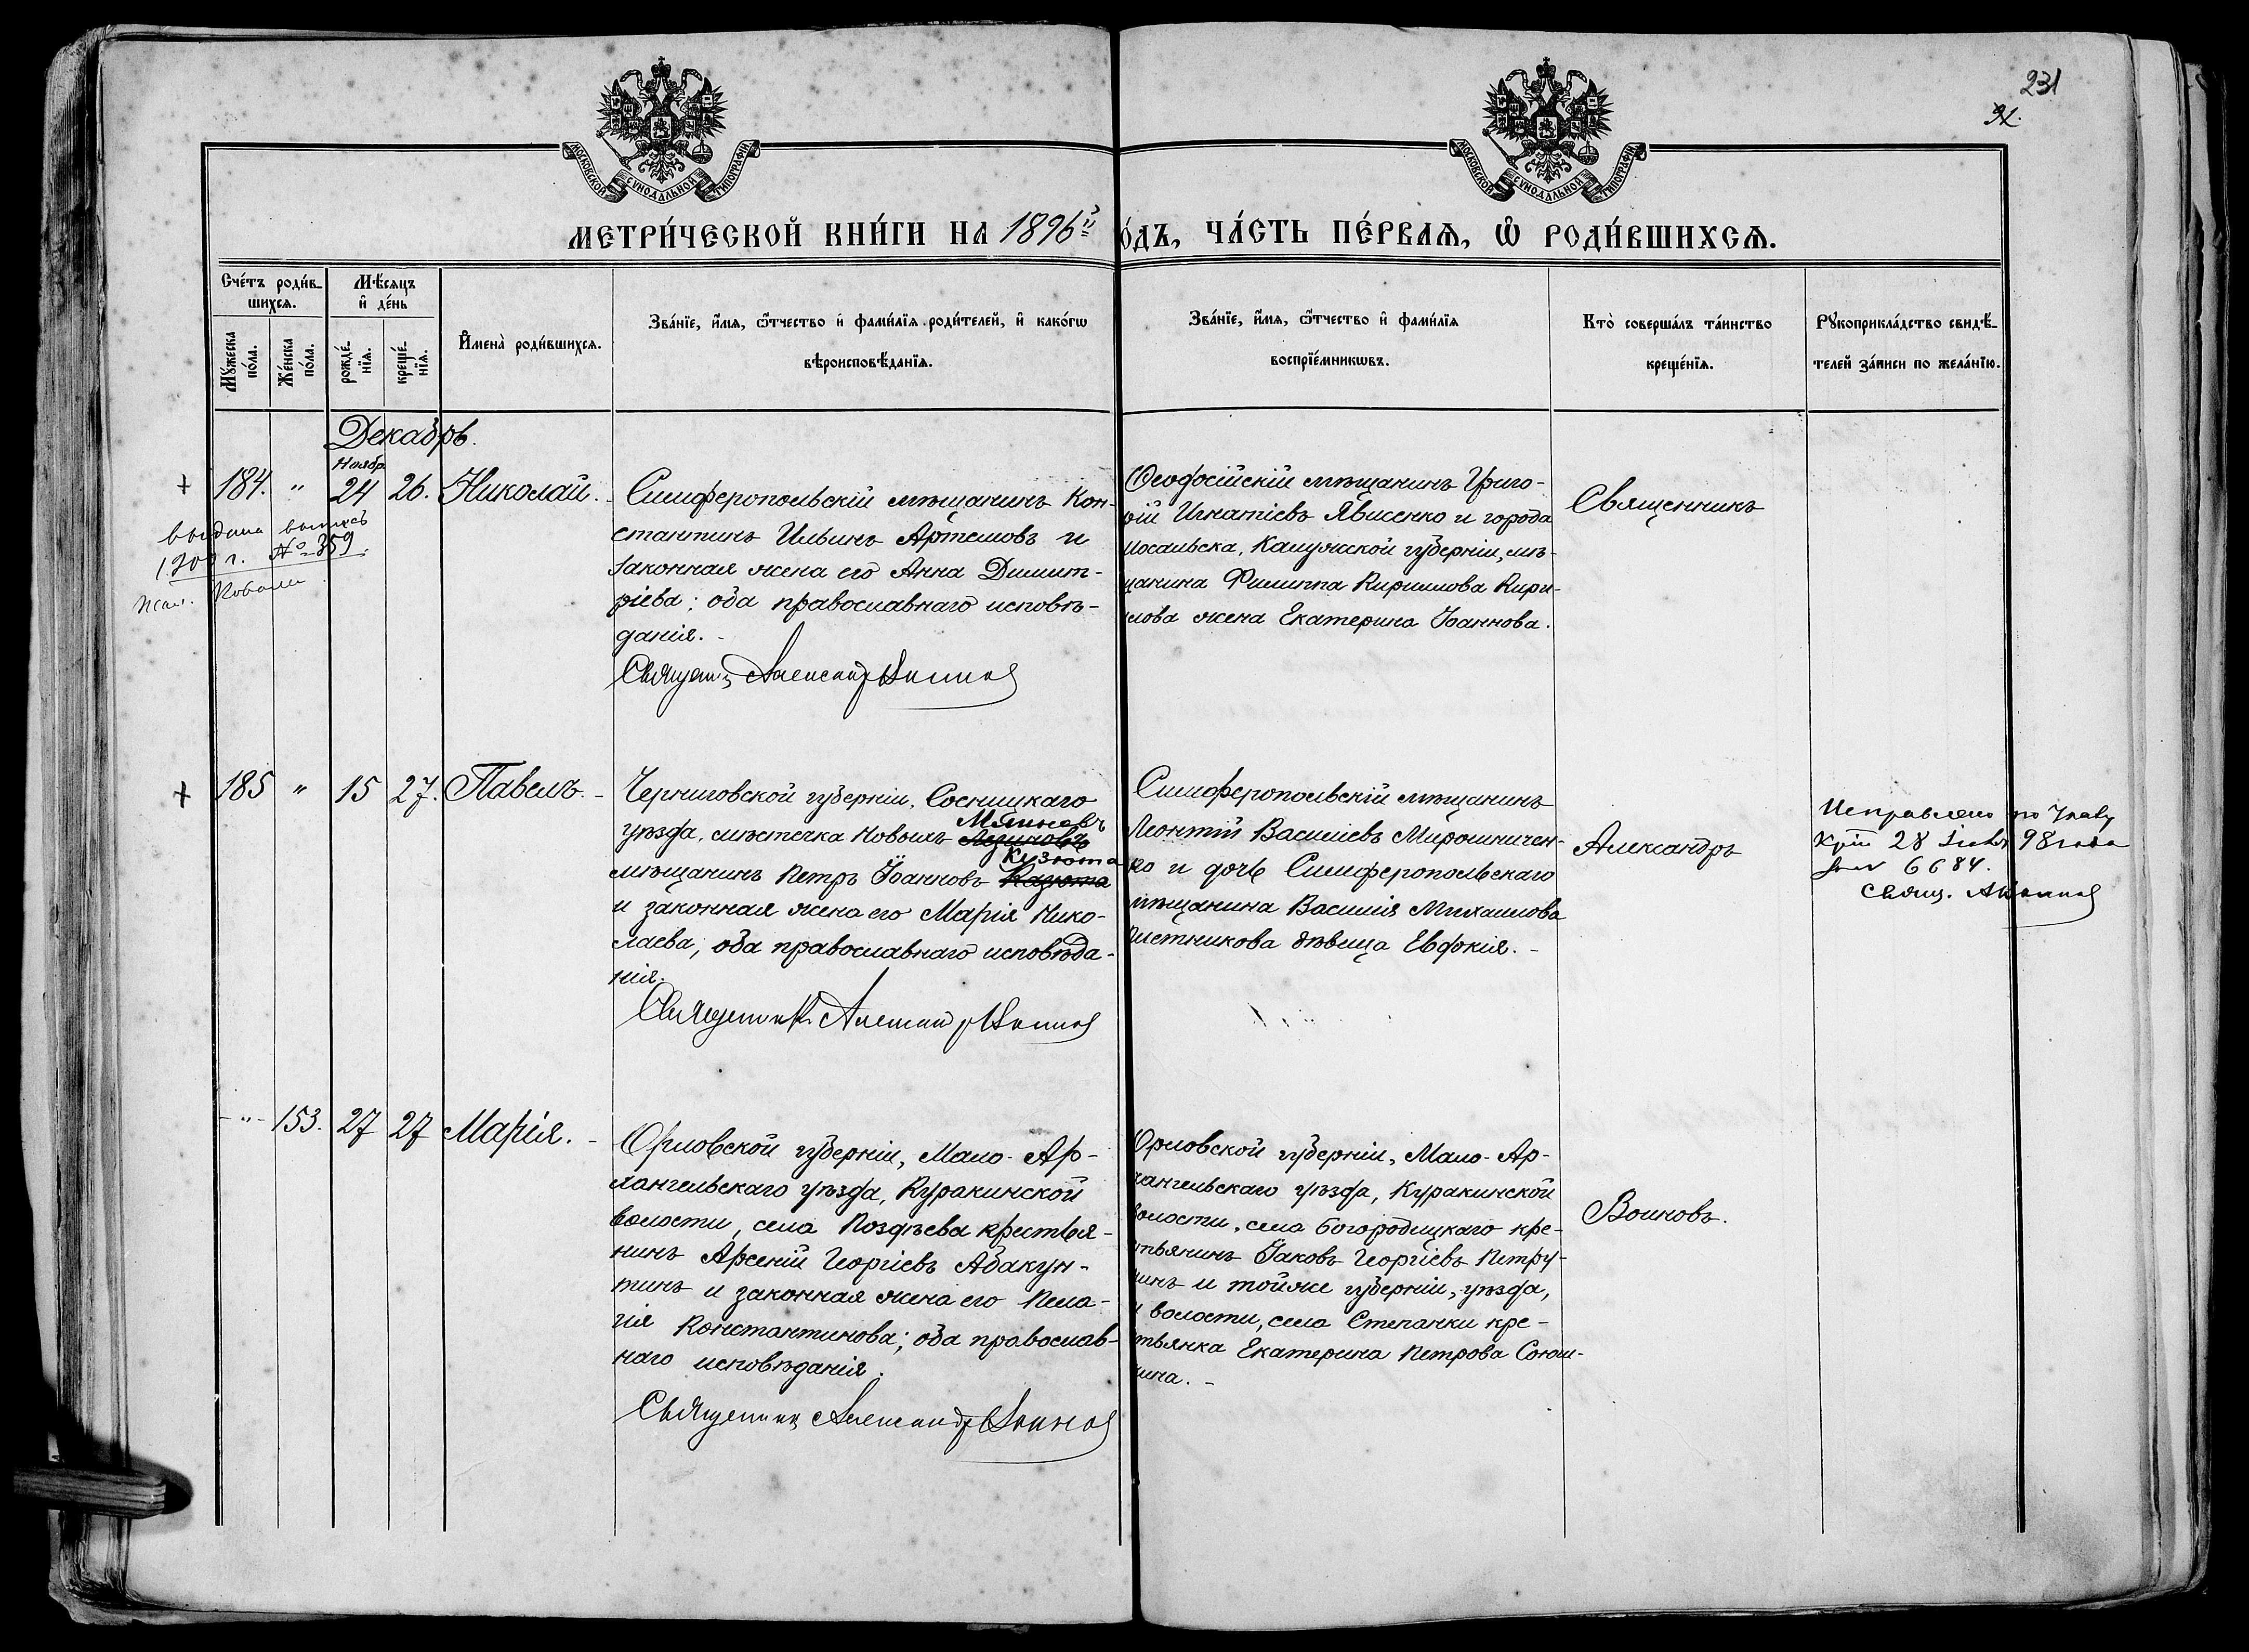 231
МОСКОВСКОЙ СУНОДАЛЬНОЙ ТИПОГРАФІИ
МОСКОВСКОЙ СУНОДАЛЬНОЙ ТИПОГРАФІИ
МЕТРИ́ЧЕСКОЙ КНИ́ГИ НА 1896й
О́ДЪ, ЧА́СТЬ ПЕ́РВАЯ, Ѡ҆ РОДИ́ВШИХСѦ.
Сче́тъ роди́в-
шихся.
Мѣ́сяцъ
и҆ де́нь
Мꙋ́жеска
по́ла.
Же́нска
по́ла.
рожде́-
нїя.
креще́-
нїя.
И҆мена̀ роди́вшихся.
Зва́нїе, и҆́мя, ѻ҆́тчество и҆ фами́лїя роди́телей, и҆ како́гѡ
вѣроисповѣ́данїя.
Зва́нїе, и҆́мя, ѻ҆́тчество и҆ фами́лїя
воспрїе́мникѡвъ.
Кто̀ соверша́лъ та́инство
креще́нїя.
Рꙋкоприкла́дство свидѣ́-
телей за́писи по жела́нїю.
Декабрь.
Ноябр.
184. " 24 26. Николай.
выдана выпись
1900 г. № 359.
Симферопольскій мѣщанинъ Кон-
стантинъ Ильинъ Артемовъ и
законная жена его Анна Димит-
ріева; оба православнаго исповѣ-
данія.
Священ. Александр Воинов
Ѳеодосійскій мѣщанинъ Григо-
рій Игнатіевъ Явисенко и города
Мосальска, Калужской губерніи, мѣ-
щанина Филиппа Кириллова Кири-
лова жена Екатерина Іоаннова.
Священникъ
185 " 15 27. Павелъ.
Черниговской губерніи, Сосницкаго
Млиновъ
уѣзда, мѣстечка Новыхъ
Кузюта
мѣщанинъ Петръ Іоанновъ Казюта
и законная жена его Марія Нико-
лаева; оба православнаго исповѣда-
нія.
Священник Александр Воинов
Симферопольскій мѣщанинъ
Леонтій Василіевъ Мирошничен-
ко и дочь Симферопольскаго
мѣщанина Василія Михаилова
дѣвица Евфкія.
Александръ
Исправлено по Указу
28 98 года
6684.
Свящ. А Воинов
" 153. 27 27 Марія.
Орловской губерніи, Мало-Ар-
хангельскаго уѣзда, Куракинской
волости, села Поздѣева крестья-
нинъ Арсеній Георгіевъ Абакун-
тинъ и законная жена его Пела-
гія Константинова; оба православ-
наго исповѣданія.
Священник Александр Воинов
Орловской губерніи, Мало-Ар-
хангельскаго уѣзда, Куракинской
волости, села Богородицкаго кре-
стьянинъ Іаковъ Георгіевъ Петру-
шинъ и тойже губерніи, уѣзда,
и волости, села Степанки кре-
стьянка Екатерина Петрова Союш-
кина.
Воиновъ.